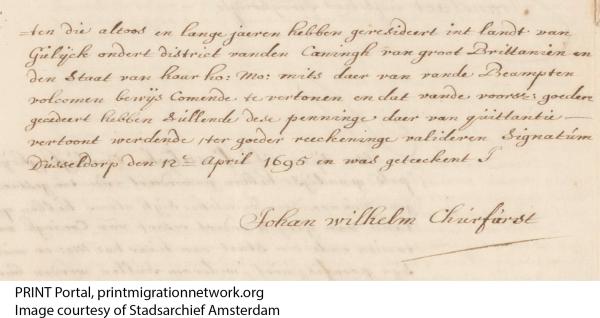 =ten die altoos en lange jaeren hebben geresideert int landt van
Gulijck ondert district vanden Coningh van groot Brittaniën en
den Staat van haar ho: Mo: mits daer van vande Beampten
volcomen bewijs Comende te vertonen en dat vande voorsz: goedere
geadeert hebben Sullende dese penninge daer van quitlantie —
vertoont werdende ter goeder reeckeninge valideren Signatúm
Dússeldorp den 12e April 1695 en was geteeckent J
Johan wilhelm Chúrfúrst
PRINT Portal, printmigrationnetwork.org
Image courtesy of Stadsarchief Amsterdam